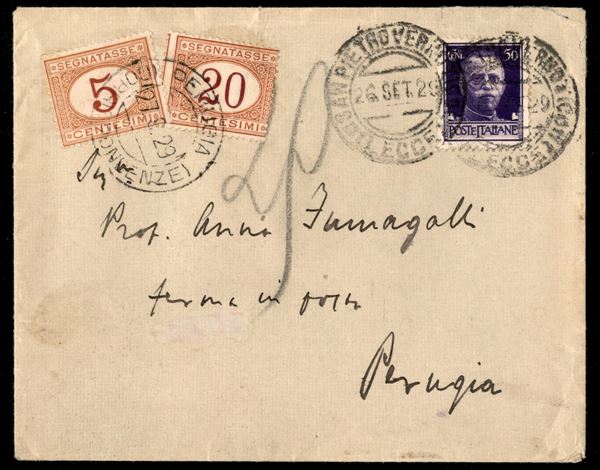 SEGNATASSE
5
CENTESIMI
SEGNATASSE
20
CENTESIMI
PERUGIA
29
SAN PIETRO VERNOTICO
26 SET. 29
(LECCE)
CENT. 50
POSTE ITALIANE
29
(LECCE)
25
Prof. Anna Fumagalli
ferma in posta
Perugia